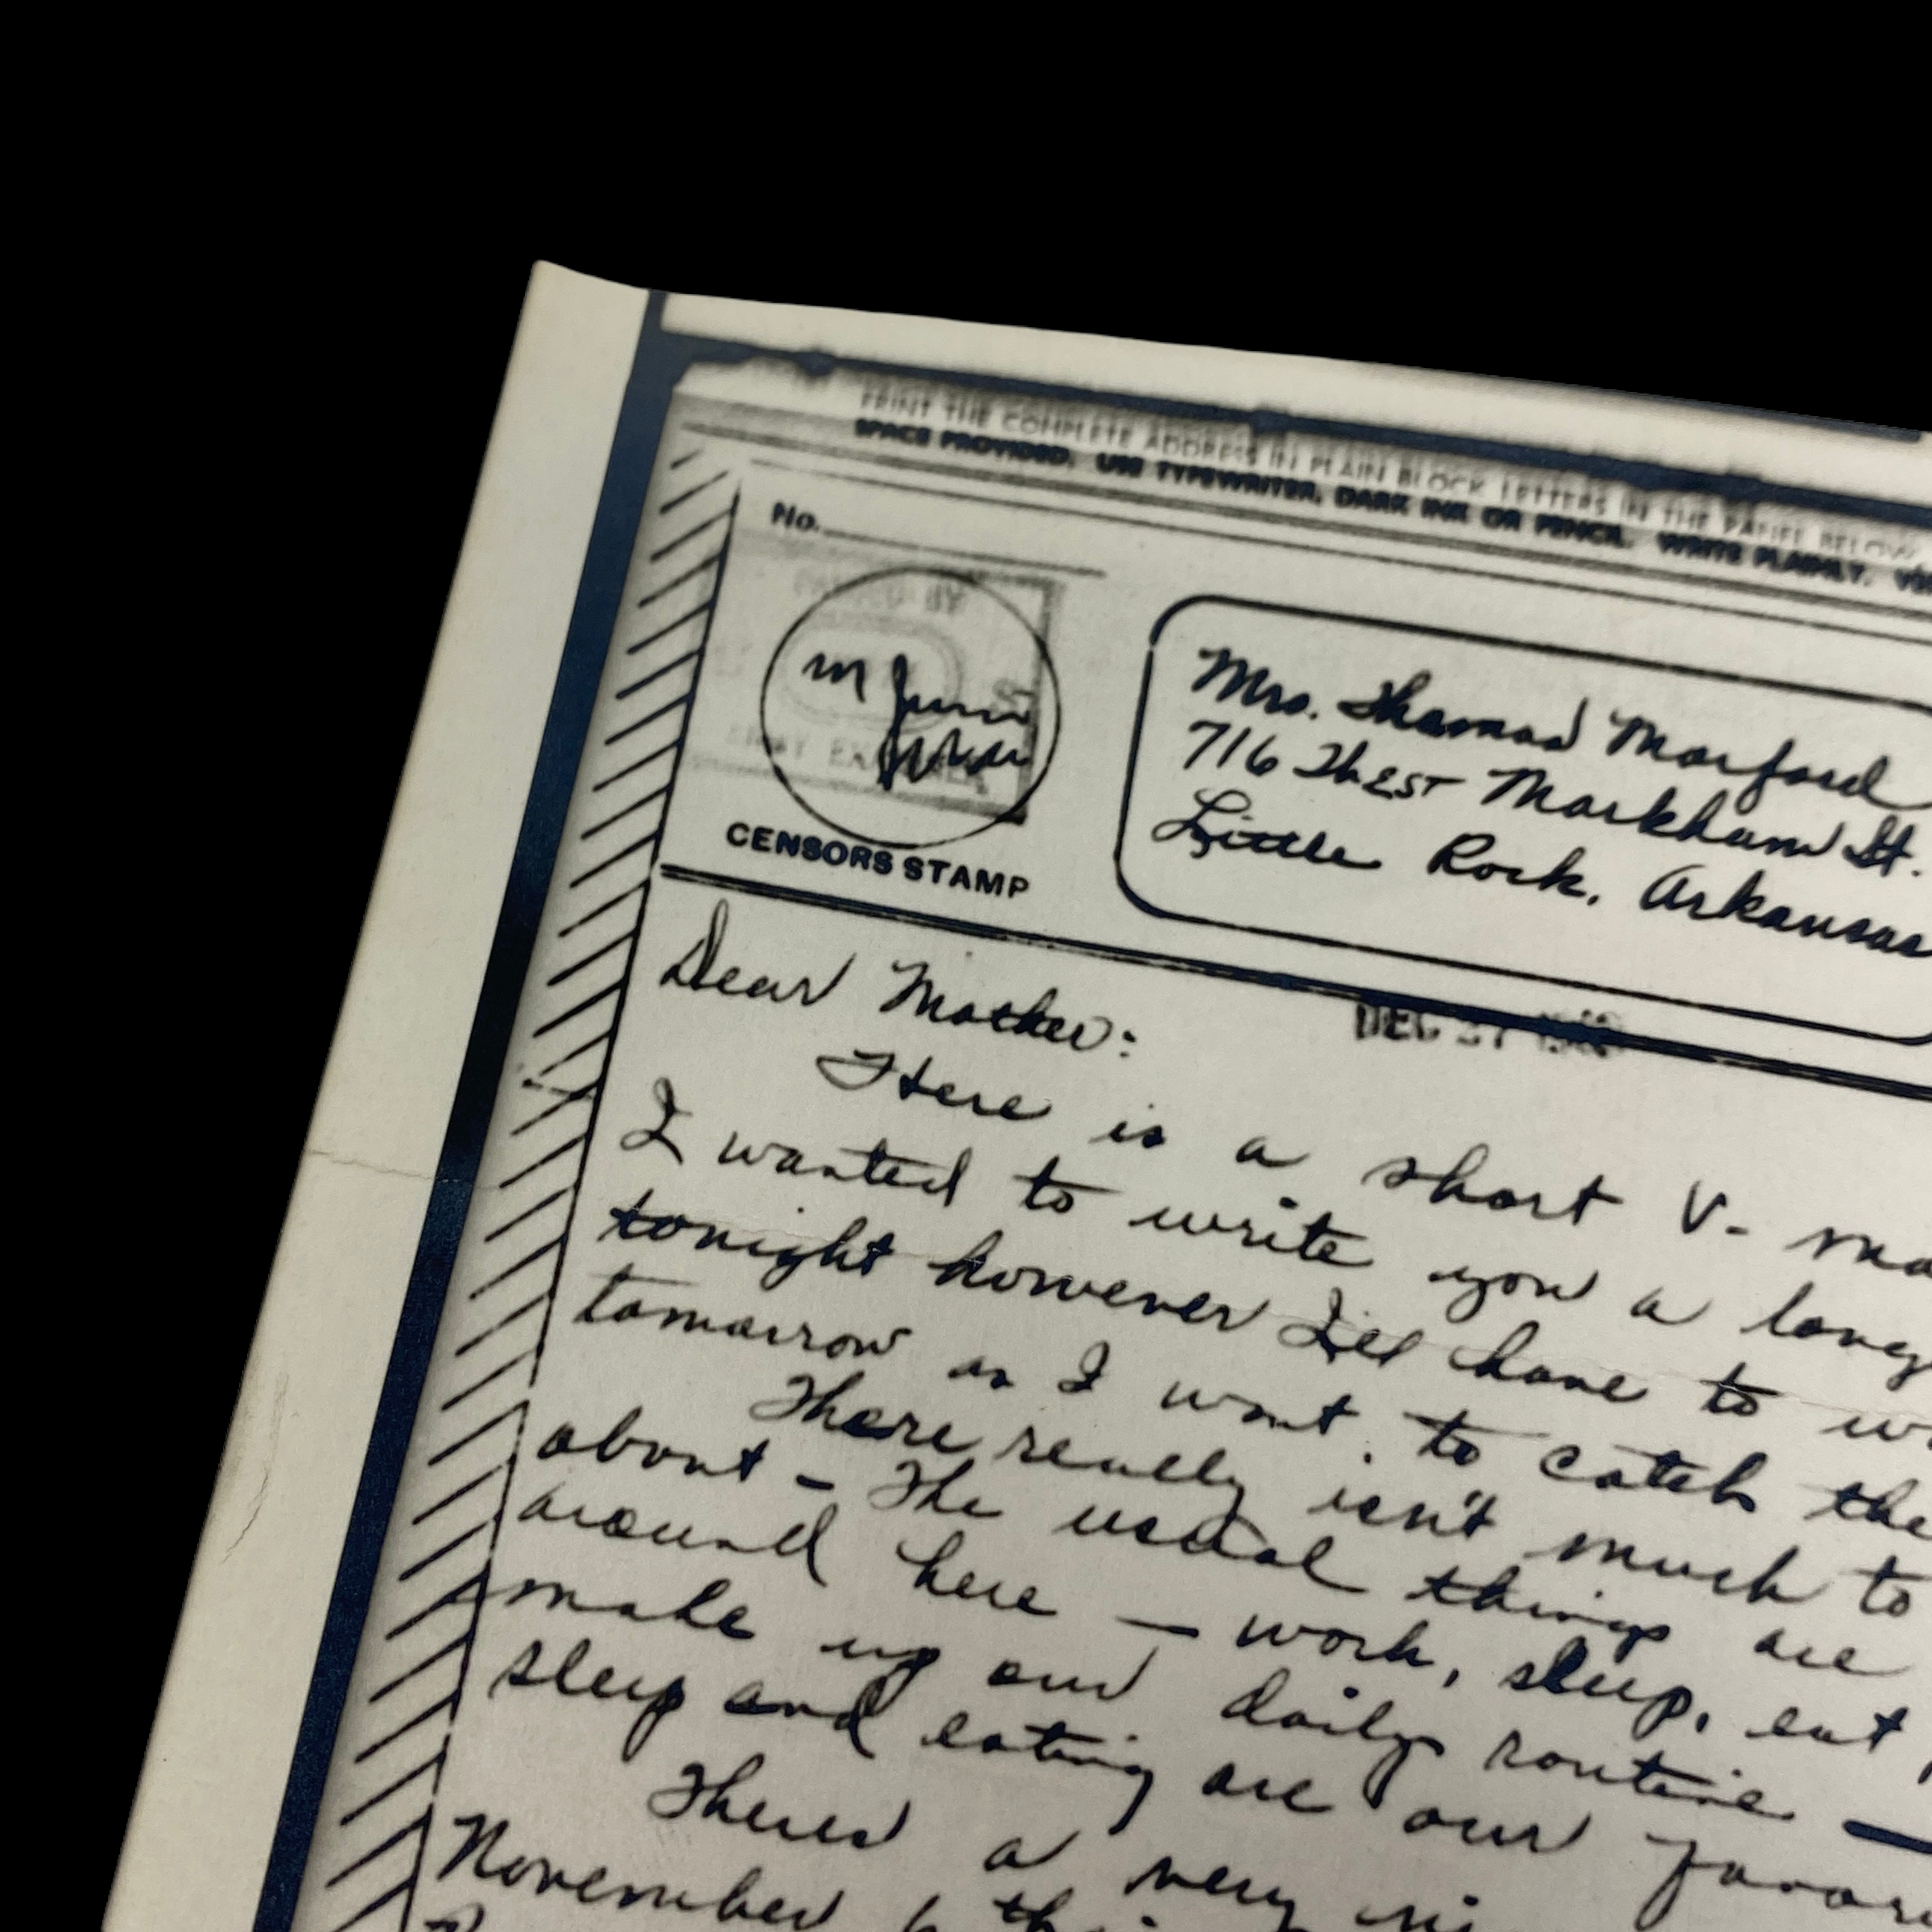 PRINT THE COMPLETE ADDRESS IN PLAIN BLOCK LETTERS IN THE PANEL BELOW,
SPACE PROVIDED. USE TYPEWRITER, DARK INK OR PENCIL. WRITE PLAINLY.
No.
BY
CENSORS STAMP
Mrs. Thomas Morford
716 West Markham St.
Little Rock, Arkansas
DEC
Dear Mother:
Here is a short V-
I wanted to write you a long
tonight however I'll have to
tomorrow as I want to catch the
There really isn't much to
about - The usual things are
around here - work, sleep, eat
make up our daily routine —
sleep and eating are our
Theres a very
November 6th